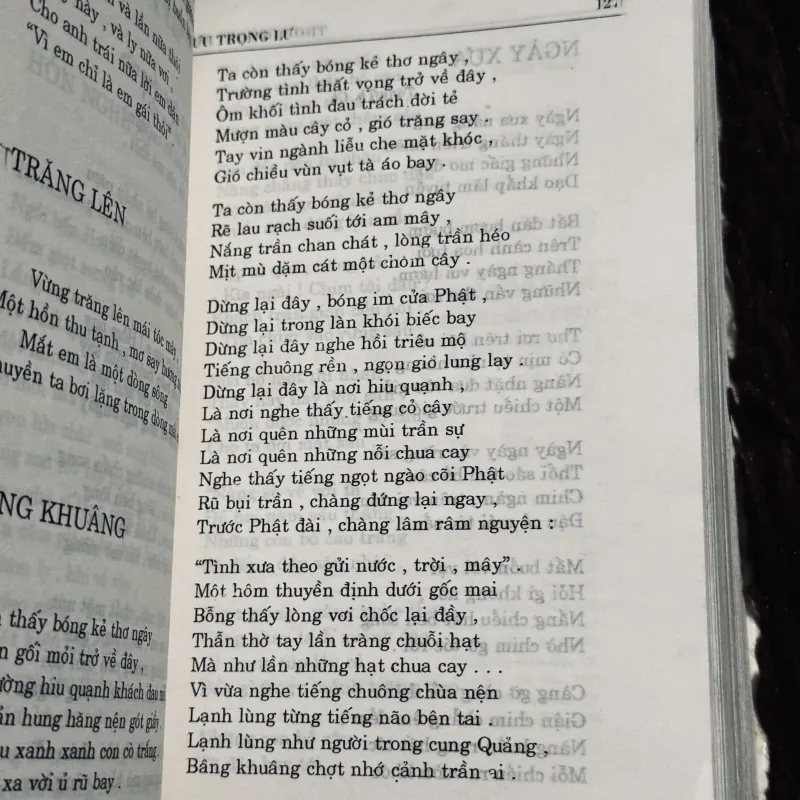 và lần nữa thôi
này , và ly nữa vơi ,
Cho anh trái nữa lời em dặn
“Vì em chỉ là em gái thôi”.
TRĂNG LÊN
Vừng trăng lên mái tóc mây ,
Một hồn thu tạnh , mơ say hương
Mắt em là một dòng sông
Thuyền ta bơi lặng trong dòng mắt
NG KHUÂNG
thấy bóng kẻ thơ ngây
gối mỏi trở về đây ,
ường hiu quạnh khách đau
hung hăng nện gót giầy
xanh xanh con cò trắng
xa vời ủ rũ bay .
LƯU TRỌNG LƯ
127
Ta còn thấy bóng kẻ thơ ngây ,
Trường tình thất vọng trở về đây ,
Ôm khối tình đau trách đời tẻ
Mượn màu cây cỏ , gió trăng say .
Tay vin ngành liễu che mặt khóc ,
Gió chiều vùn vụt tà áo bay .
Ta còn thấy bóng kẻ thơ ngây
Rẽ lau rạch suối tới am mây ,
Nắng trần chan chát , lòng trần héo
Mịt mù dặm cát một chòm cây .
Dừng lại đây , bóng im cửa Phật ,
Dừng lại trong làn khói biếc bay
Dừng lại đây nghe hồi triêu mộ
Tiếng chuông rền , ngọn gió lung lay .
Dừng lại đây là nơi hiu quạnh ,
Là nơi nghe thấy tiếng cỏ cây
Là nơi quên những mùi trần sự
Là nơi quên những nỗi chua cay
Nghe thấy tiếng ngọt ngào cõi Phật
Rũ bụi trần , chàng đứng lại ngay ,
Trước Phật đài , chàng lâm râm nguyện :
“Tình xưa theo gửi nước , trời , mây” .
Một hôm thuyền định dưới gốc mai
Bỗng thấy lòng vơi chốc lại đầy ,
Thẫn thờ tay lần tràng chuỗi hạt
Mà như lần những hạt chua cay . . .
Vì vừa nghe tiếng chuông chùa nện
Lạnh lùng từng tiếng não bên tai .
Lạnh lùng như người trong cung Quảng ,
Bâng khuâng chợt nhớ cảnh trần ai .